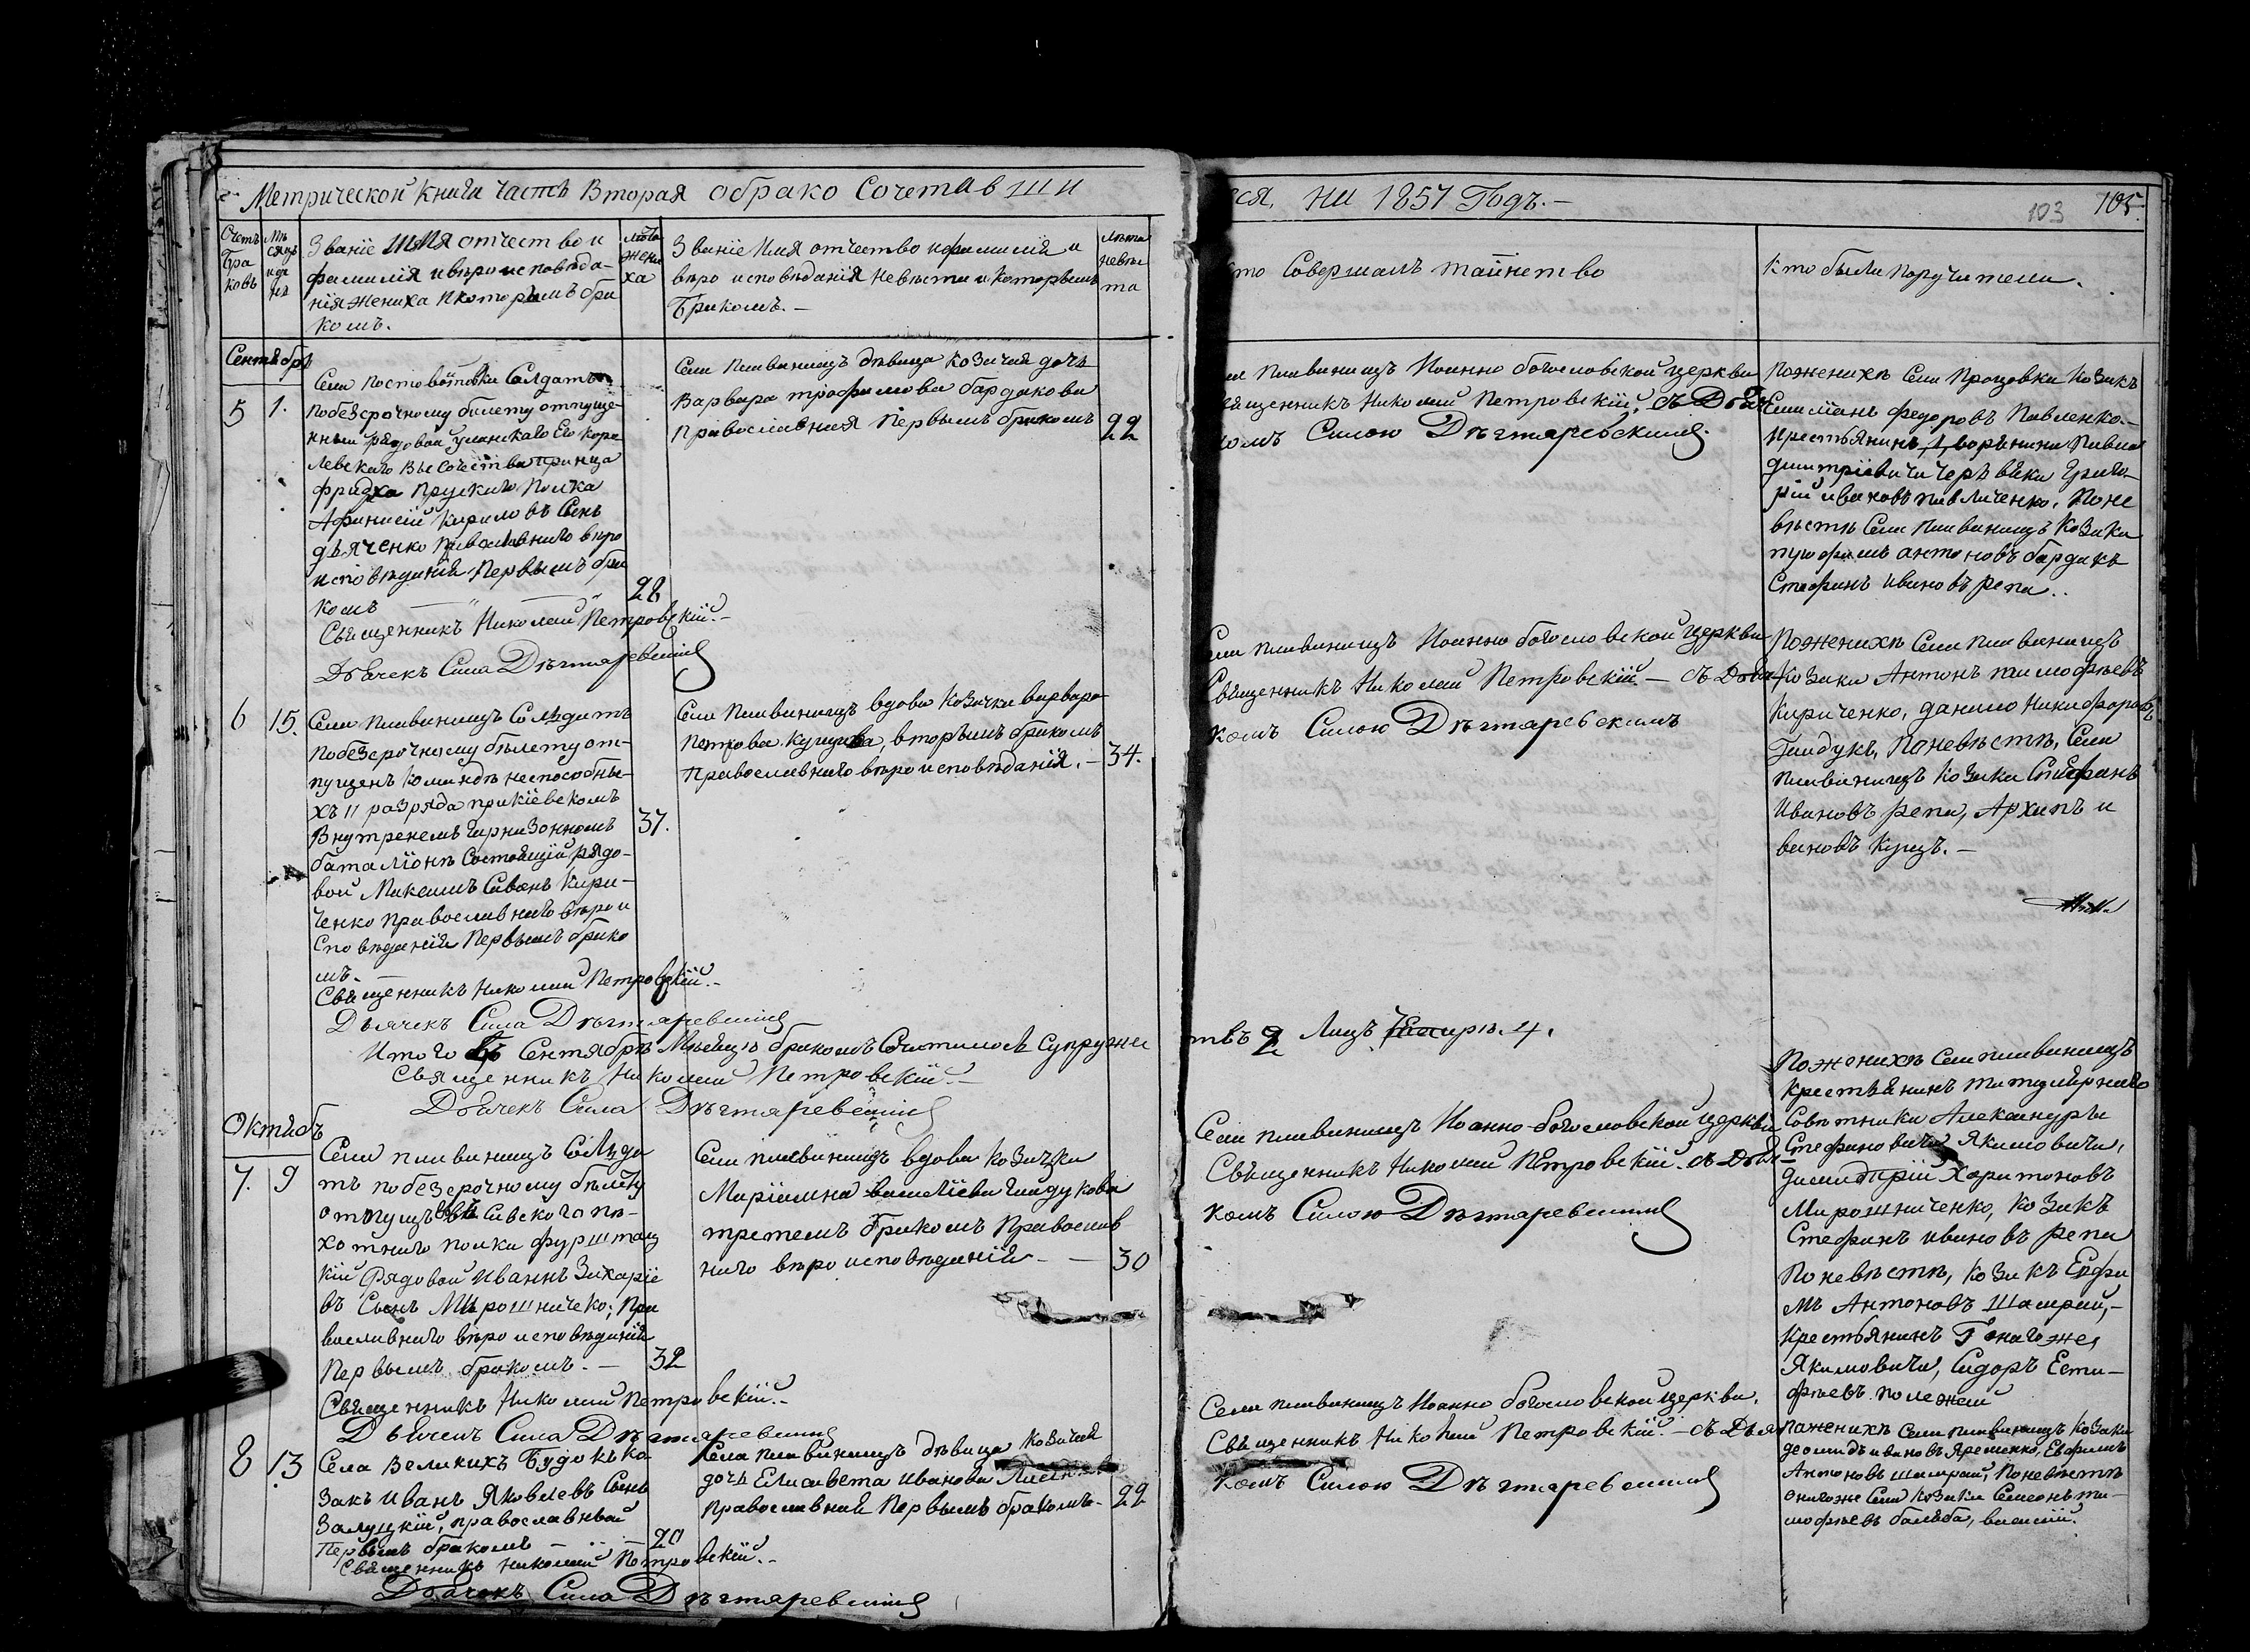 Метрической Книги часть Вторая обрако Сочетавши
ся, на 1857 Годъ.-
103 105.
Счетъ
бра
ковъ
Мѣ
сяцъ
и де
нь
Званіе имя отчество и
фамилія и вѣроисповѣда-
нія жениха и которымъ бра
комъ.
лѣта
жени
ха
Званіе Имя отчество и фамилія и
вѣро исповѣданія невѣсти и которымъ
Бракомъ.-
лѣта
невѣс
та
кто Совершалъ таинство
Кто были поручители.
Сентябрь
5 1.
Села постовойтовки Салдатъ
по безсрочному билету отпуще-
нный рядовой уланскаго Его коро
левскаго Высочества принца
Прускаго Полка
Афанасій Кириловъ Сынъ
дьяченко православнаго вѣро
исповѣданія Первымъ бра
комъ
28
Священникъ Николай Петровскій.-
Дьячекъ Сила Дѣгтяревскій
Села Пливаницъ дѣвица козачая дочь
Варвара трофимова бардакова
православная Первымъ бракомъ
22
Села Пливаницъ Иоанно богословской церкви
Священникъ Николай Петровскій, съ Дьяч
комъ Силою Дѣгтяревскимъ.
По женихѣ Села Процовки козакъ
федоровъ Павленко.-
Крестьянинъ дворянина Павла
димитріевича Григо-
рій ивановъ павличенко, По не
вѣстѣ Села Пливаницъ Козаки
трофимъ антоновъ бардакъ
Стефанъ ивановъ репа..
6 15.
Села Пливаницъ Солдатъ
по безсрочному билету от-
пущенъ командѣ неспособны-
хъ 11 разряда при кіевскомъ
Внутренемъ гарнизонномъ
баталіонѣ Состоящій рядо-
вой Максимъ Савинъ Кири-
ченко православнаго вѣрои
споведанія Первымъ брако
мъ.
37.
Священникъ Николай Петровскій.-
Дьячекъ Сила Дѣгтяревскій
Села Пливаницъ вдова Козачка варвара
Петрова, вторымъ бракомъ
православнаго вѣроисповѣданія.-
34.
Села пливаницъ Иоанно богословской церкви
Священникъ Николай Петровскій - съ Дьяч
комъ Силою Дѣгтяревскимъ
По женихѣ Села пливаницъ
Козаки Антонъ тимофѣевъ
Кириченко, данило никифоровъ
Гайдукъ, По невѣстѣ, Села
пливаницъ козаки Стефанъ
Ивановъ репа, Архипъ и
вановъ Куцъ.-
Итого въ Сентябрѣ Мѣсяцѣ бракомъ Сочиталося супруже
ствъ 2 Лицъ четыри. 4.
Священникъ Николай Петровскій.-
Дьячекъ Сила Дѣгтяревскій
Октябъ
7. 9
Села пливаницъ Солда
тъ по безсрочному билѣту
отпущ Сивского пѣ-
хотнаго полка фурштац
кій Рядовой Иваннъ Захаріе
въ Сынъ Мирошниченко; Пра
вославнаго вѣроисповѣданія
Первымъ бракомъ.-
32
Священникъ Николай Петровскій.-
Дьячекъ Сила Дѣгтяревскій
Села пливаницъ вдова Козачка
Маріанна василіева гайдукова
третемъ бракомъ Православ
наго вѣроисповѣданія -
30
Села пливаницъ Иоанно-богословской церкви
Священникъ Николай Петровскій. съ Дьяч-
комъ Силою Дѣгтяревскимъ
По женихѣ Села пливаницъ
Крестьянинъ титулярнаго
Совѣтника Александры
Стефановича Якимовича,
димитрій Харитоновъ
Мирошниченко, Козакъ
Стефанъ ивановъ репа
По невѣстѣ, козакъ Евфи
мъ Антоновъ Шамрай,-
Крестьянинъ Тогожже,
Якимовича, Сидоръ Еста-
фьевъ полежай
8 13.
Села Великихъ Будокъ ка
закъ Иванъ Яковлевъ Сынъ
Залуцкій, православный
Первымъ бракомъ -
20
Священникъ Николай Петровскій.-
Дьячекъ Сила Дѣгтяревскій
Села Пливаницъ дѣвица козачая
дочь Елисавета иванова
православная Первымъ бракомъ-
22
Села пливаницъ Иоанно богословской церкви,
Священникъ Николай Петровскій - съ Дьяч
комъ Силою Дѣгтяревскимъ
По женихѣ Села пливаницъ Козаки
ивановъ Яременко, Евфимъ
Антоновъ шамрай, По невѣстѣ
оногоже Села козаки Семеонъ ти-
мофѣевъ балаба, василій.